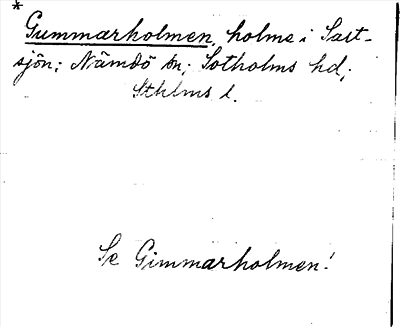 *
Gummarholmen, holme i Salt-
sjön; Nämdö sn; Sotholms hd;
Sthlms l.
Se Gimmarholmen!